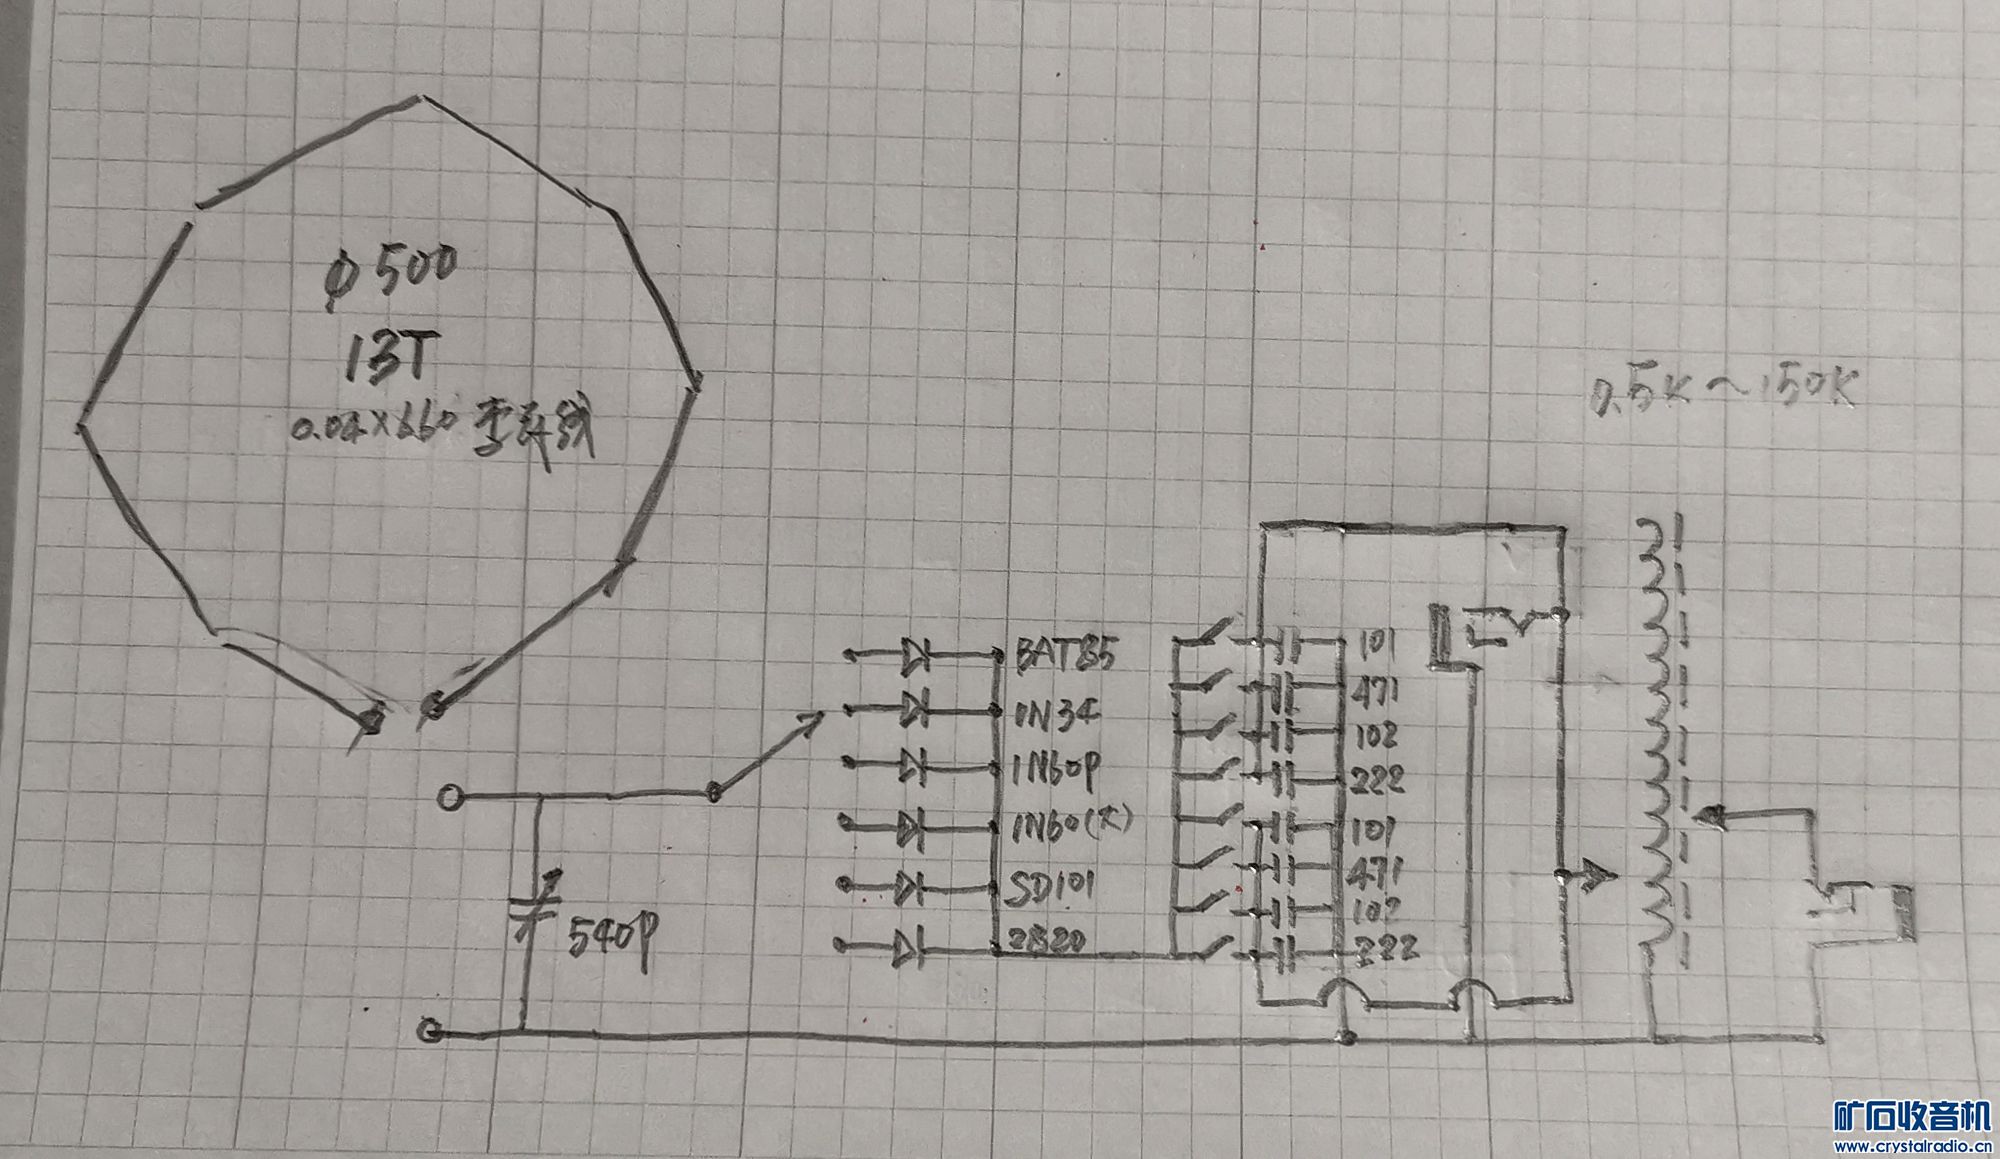 φ500
13T
0.04×660 李兹线
0.5K~150K
540P
BAT85
1N34
1N60P
1N60(大)
SD101
2B20
101
471
102
222
101
471
102
222
矿石收音机
www.crystalradio.cn